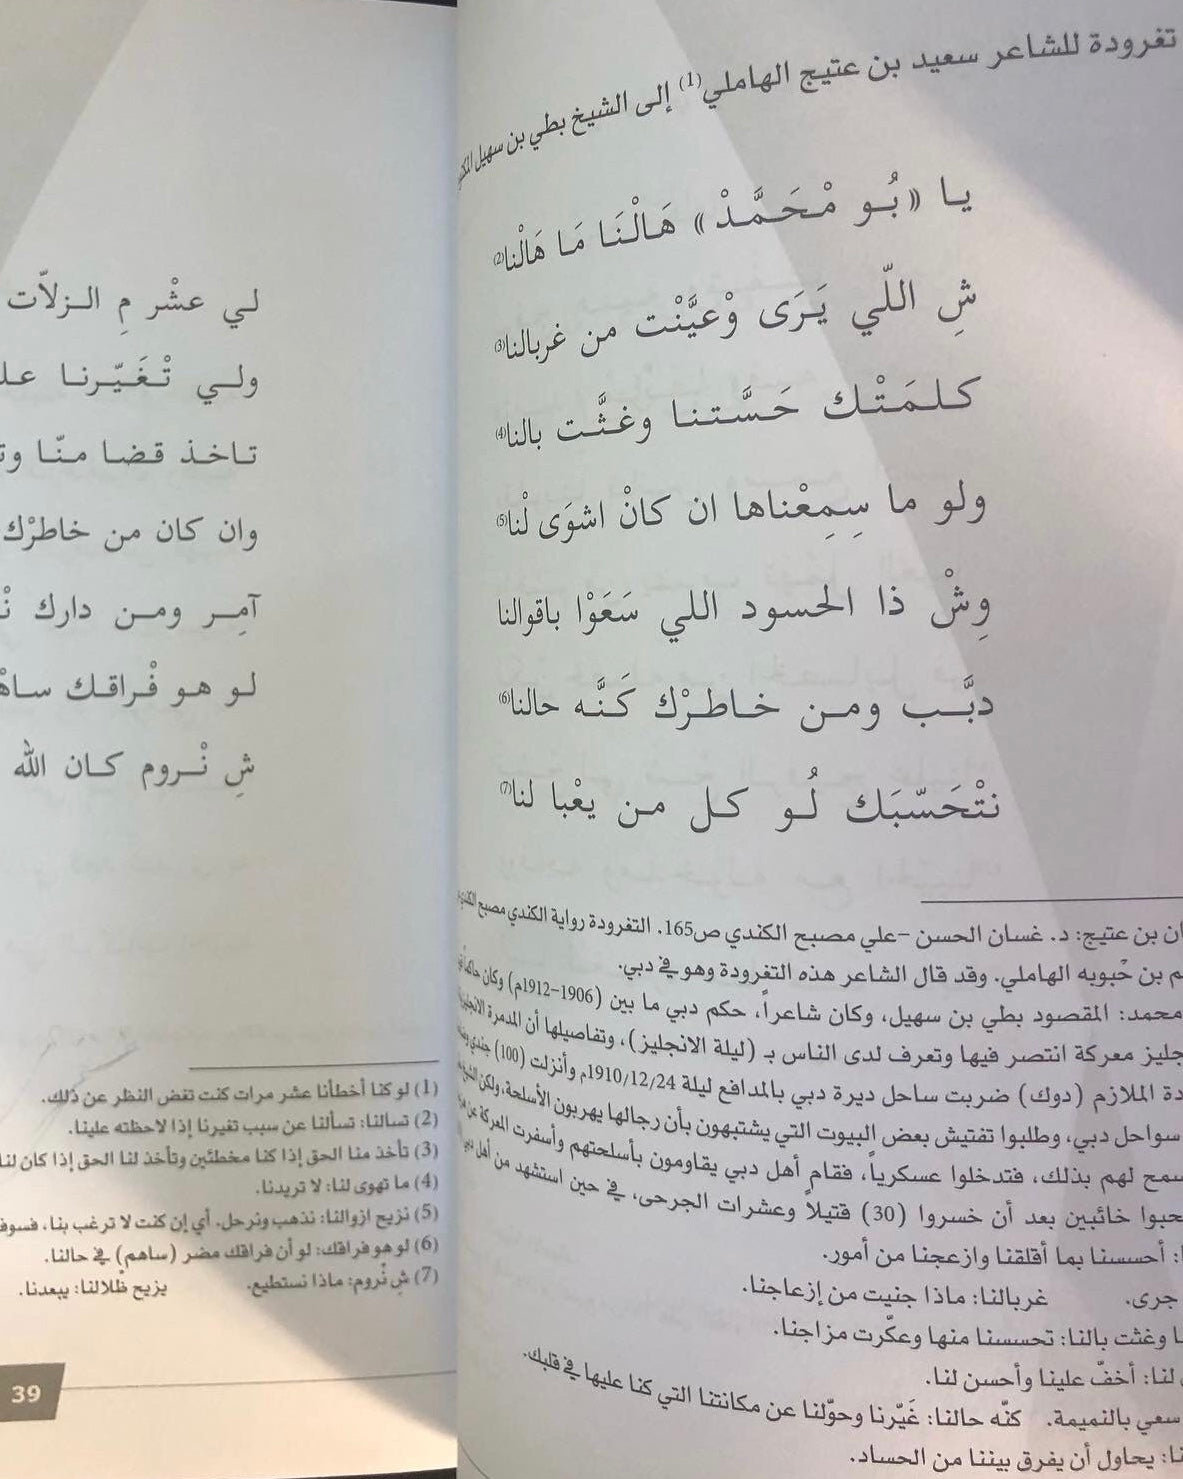 تغرودة للشاعر سعيد بن عتيج الهاملي(1) إلى الشيخ بطي بن سهيل
يا «بُو مْحَمَّدْ» هَالْنَا مَا هَالْنا(2)
شِ اللّي يَرَى وْعيَّنْت من غربالنا(3)
كلمَتْك حَسَّتنا وغثَّت بالنا(4)
ولو ما سِمِعْناها ان كانْ اشوَى لْنا(5)
وِشْ ذا الحسود اللي سَعَوْا باقوالنا
دبَّب ومن خاطرْك كَنَّه حالنا(6)
نتْحَسّبَك لُو كل من يعْبا لنا(7)
ان بن عتيج: د. غسان الحسن –علي مصبح الكندي ص165. التغرودة رواية الكندي مصبح
م بن حْبوبه الهاملي. وقد قال الشاعر هذه التغرودة وهو في دبي.
محمد: المقصود بطي بن سهيل، وكان شاعراً، حكم دبي ما بين (1906–1912م) وكان حاكماً
جليز معركة انتصر فيها وتعرف لدى الناس بـ (ليلة الانجليز)، وتفاصيلها أن المدمرة
دة الملازم (دوك) ضربت ساحل ديرة دبي بالمدافع ليلة 1910/12/24م وأنزلت (100) جندي
سواحل دبي، وطلبوا تفتيش بعض البيوت التي يشتبهون بأن رجالها يهربون الأسلحة، ولكن
سمح لهم بذلك، فتدخلوا عسكرياً، فقام أهل دبي يقاومون بأسلحتهم وأسفرت المعركة عن
حبوا خائبين بعد أن خسروا (30) قتيلاً وعشرات الجرحى، في حين استشهد من أهل دبي
: أحسسنا بما أقلقنا وازعجنا من أمور.
جرى. غربالنا: ماذا جنيت من إزعاجنا.
ا وغثت بالنا: تحسسنا منها وعكّرت مزاجنا.
لنا: أخفّ علينا وأحسن لنا.
سعي بالنميمة. كنّه حالنا: غَيّرنا وحوّلنا عن مكانتنا التي كنا عليها في قلبك.
نا: يحاول أن يفرق بيننا من الحساد.
لي عشْر مِ الزلاّت
ولي تْغَيّرنا
تاخذ قضا منّا
وان كان من خاطرْك
آمِر ومن دارك
لو هو فْراقك
شِ نْروم كان الله
(1) لو كنا أخطأنا عشر مرات كنت تغض النظر عن ذلك.
(2) تسالنا: تسألنا عن سبب تغيرنا إذا لاحظته علينا.
(3) تأخذ منا الحق إذا كنا مخطئين وتأخذ لنا الحق إذا كان لنا
(4) ما تهوى لنا: لا تريدنا.
(5) نزيح ازوالنا: نذهب ونرحل. أي إن كنت لا ترغب بنا، فسوف
(6) لو هو فراقك: لو أن فراقك مضر (ساهم) في حالنا.
(7) شِ نْروم: ماذا نستطيع. يزيح ظْلالنا: يبعدنا.
39